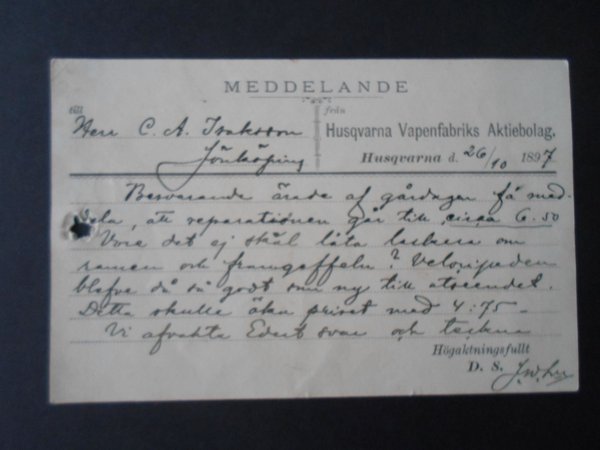 MEDDELANDE
till
från
Herr C. A. Isaksson
Jönköping
Husqvarna Vapenfabriks Aktiebolag.
Husqvarna d. 26/10 1897
Besvarande ärade af gårdagen få med-
dela, att reparationen går till circa 6.50
Vore det ej skäl låta lackera om
ramen och framgaffeln? Velocipeden
blefve då så godt som ny till utseendet.
Detta skulle öka priset med 4:75.
Vi afvakta Edert svar och teckna
Högaktningsfullt
D. S.